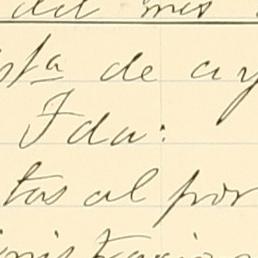 del mes
sta de ay
Fda:
tas al por
inistracion